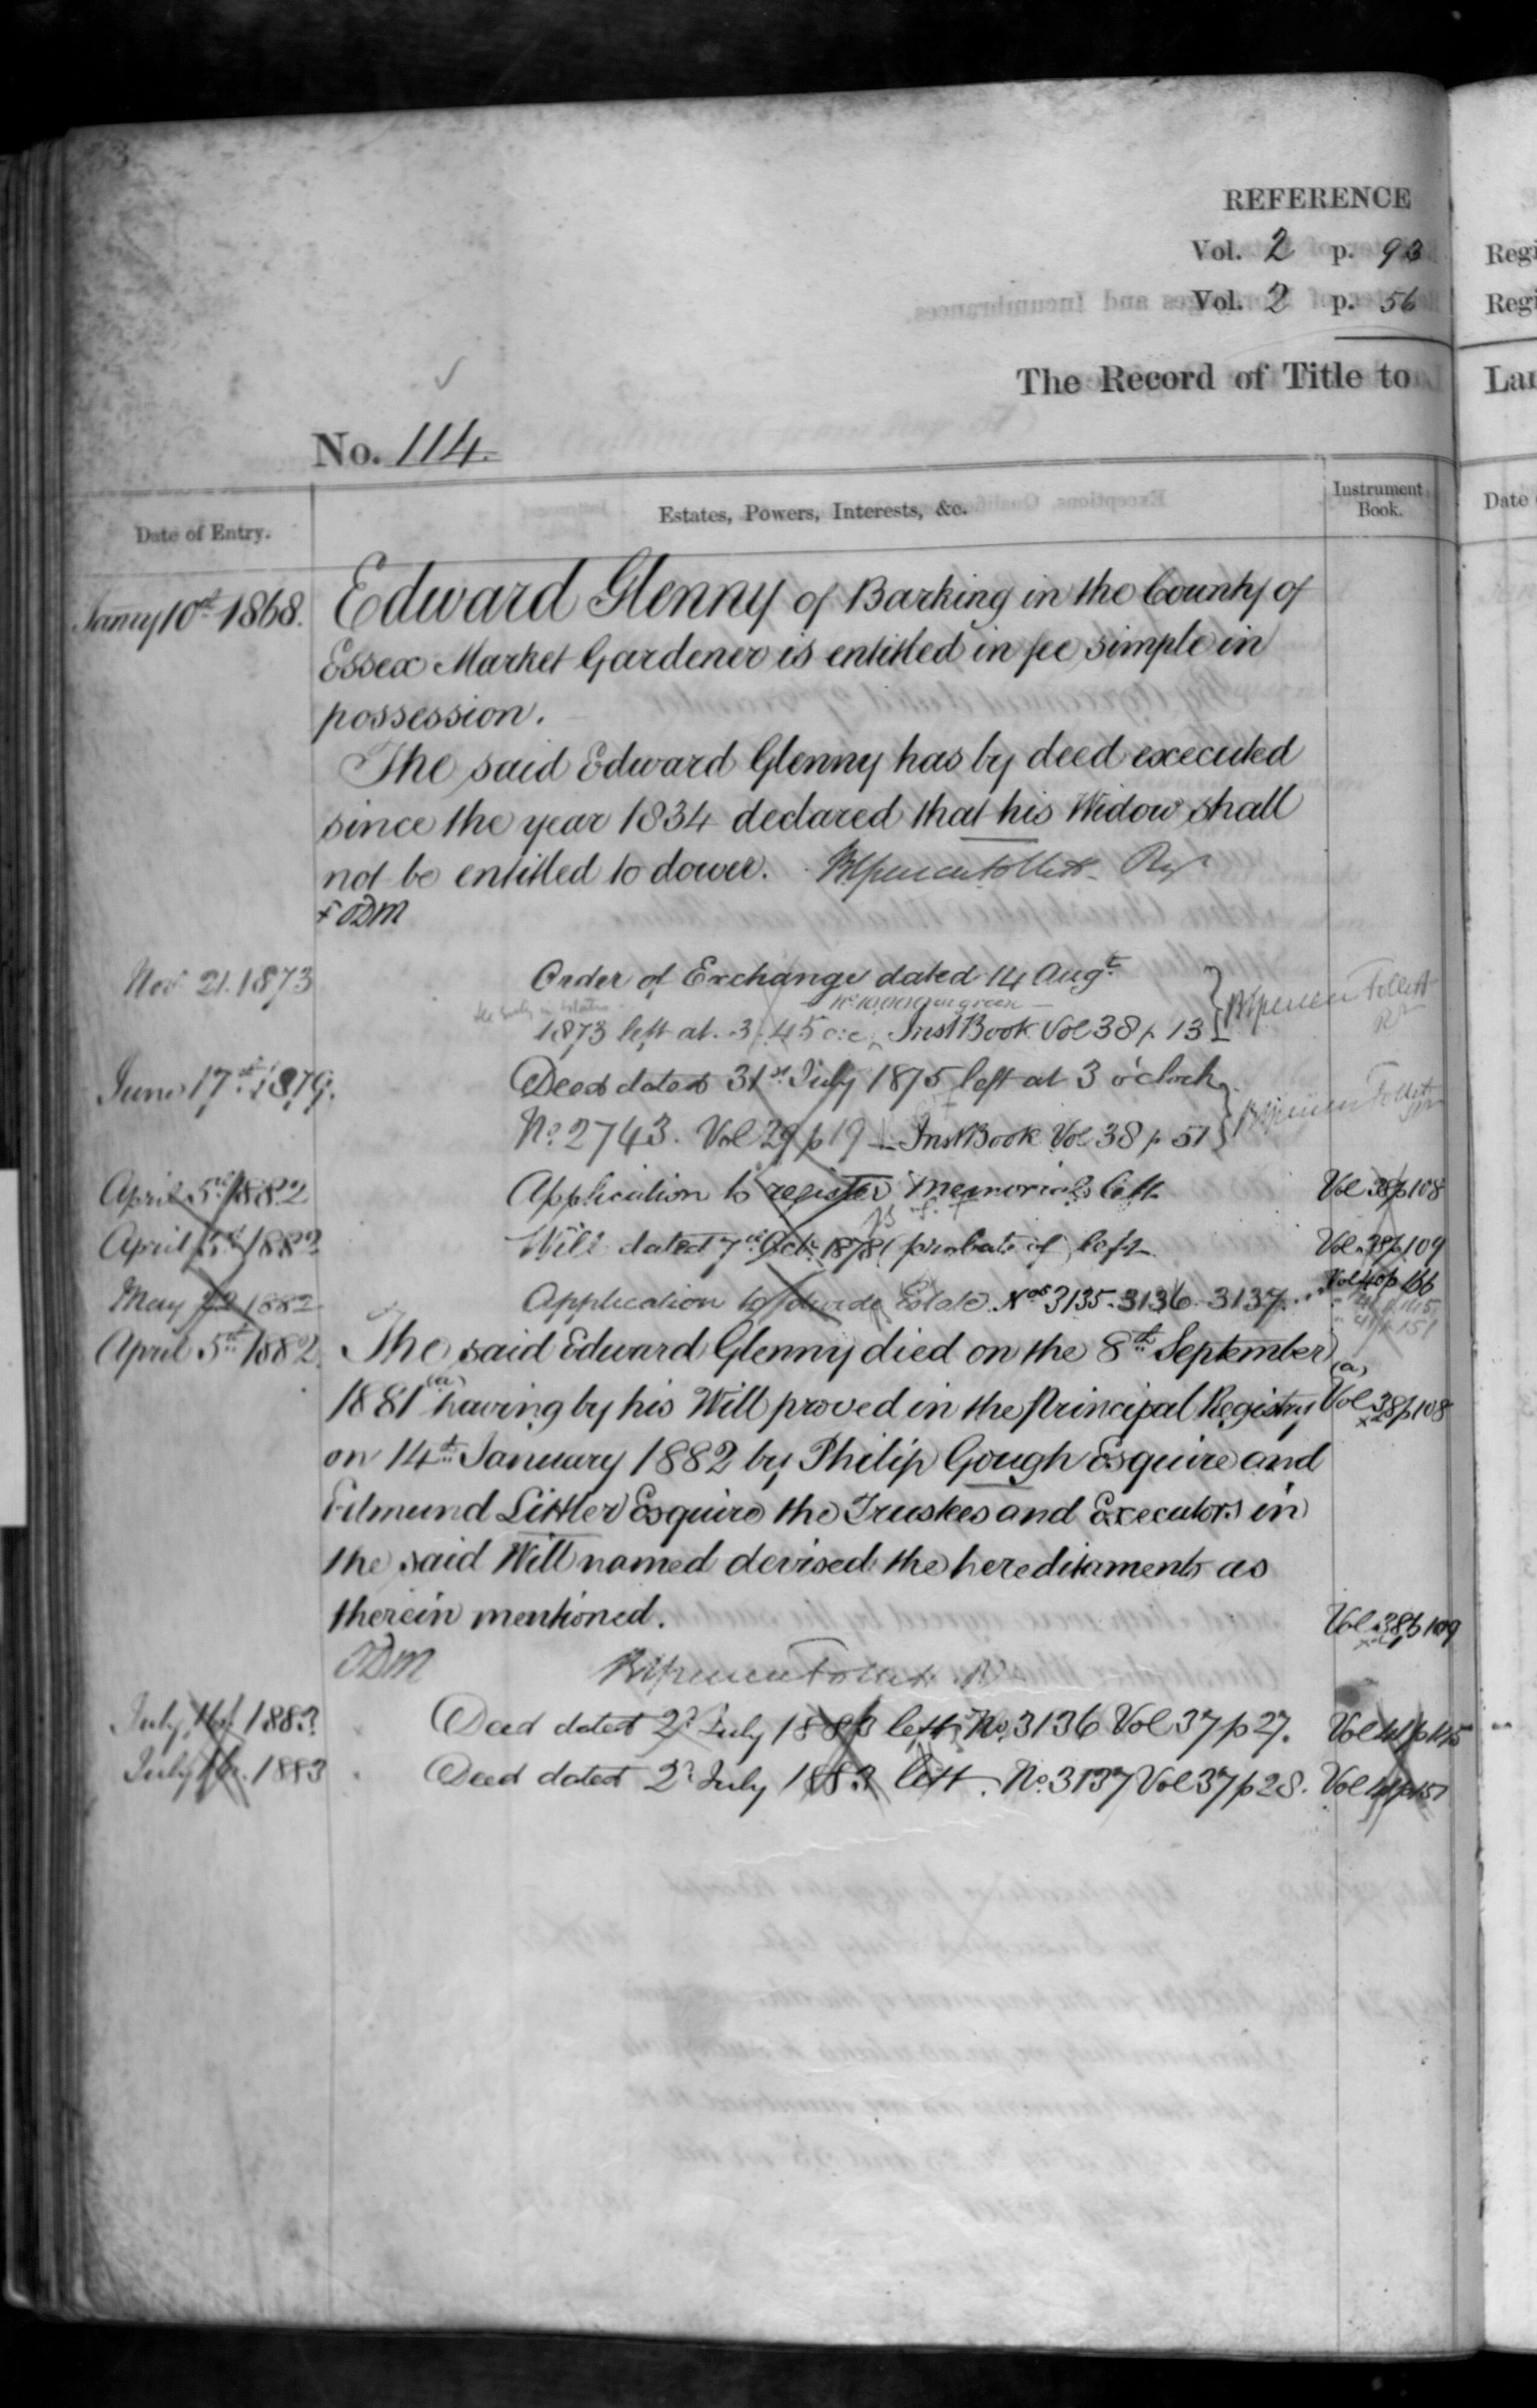 REFERENCE
Vol. 2 p. 93
Vol. 2 p. 56
The Record of Title to
No. 114.
Date of Entry.
Estates, Powers, Interests, &c.
Instrument Book.
Janry 10th 1868.
Edward Glenny of Barking in the County of
Essex Market Gardener is entitled in fee simple in
possession.
The said Edward Glenny has by deed executed
since the year 1834 declared that his Widow shall
not be entitled to dower. BSpencer Follett Regr
+ ODM
Nov 21. 1873
Order of Exchange dated 14 Augt
1873 left at 3.45 o.c. Inst Book Vol 38 p 13
BSpencer Follett
Rr
June 17th 1879.
Deed dated 31st July 1875 left at 3 o'clock
No. 2743. Vol 29 p 19 – Inst Book Vol 38 p 51
BSpencer Follett
April 5th 1882
Application to register Memorials left
Vol 38 p 108
April 5th 1882
Will dated 7th Octr 1878 (probate of) left
Vol. 38 p 109
May 1882
Application to divide Estate Nos 3135. 3136. 3137.
Vol 40 p 166
" 41 p 145
" 41 p 151
April 5th 1882
The said Edward Glenny died on the 8th September
(a)
1881 (a) having by his Will proved in the Principal Registry
Vol 38 p 108
on 14th January 1882 by Philip Gough Esquire and
Edmund Littler Esquire the Trustees and Executors in
the said Will named devised the hereditaments as
therein mentioned.
Vol. 38 p 109
ODM
BSpencer Follett Rr
July 16. 1883
Deed dated 2d July 1883 left No. 3136 Vol 37 p 27.
Vol 41 p 145
July 16. 1883
Deed dated 2d July 1883 left. No. 3137 Vol 37 p 28.
Vol 41 p 151
Regi
Regi
Lan
Date